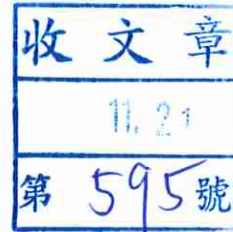 收文章
11.21
第595號